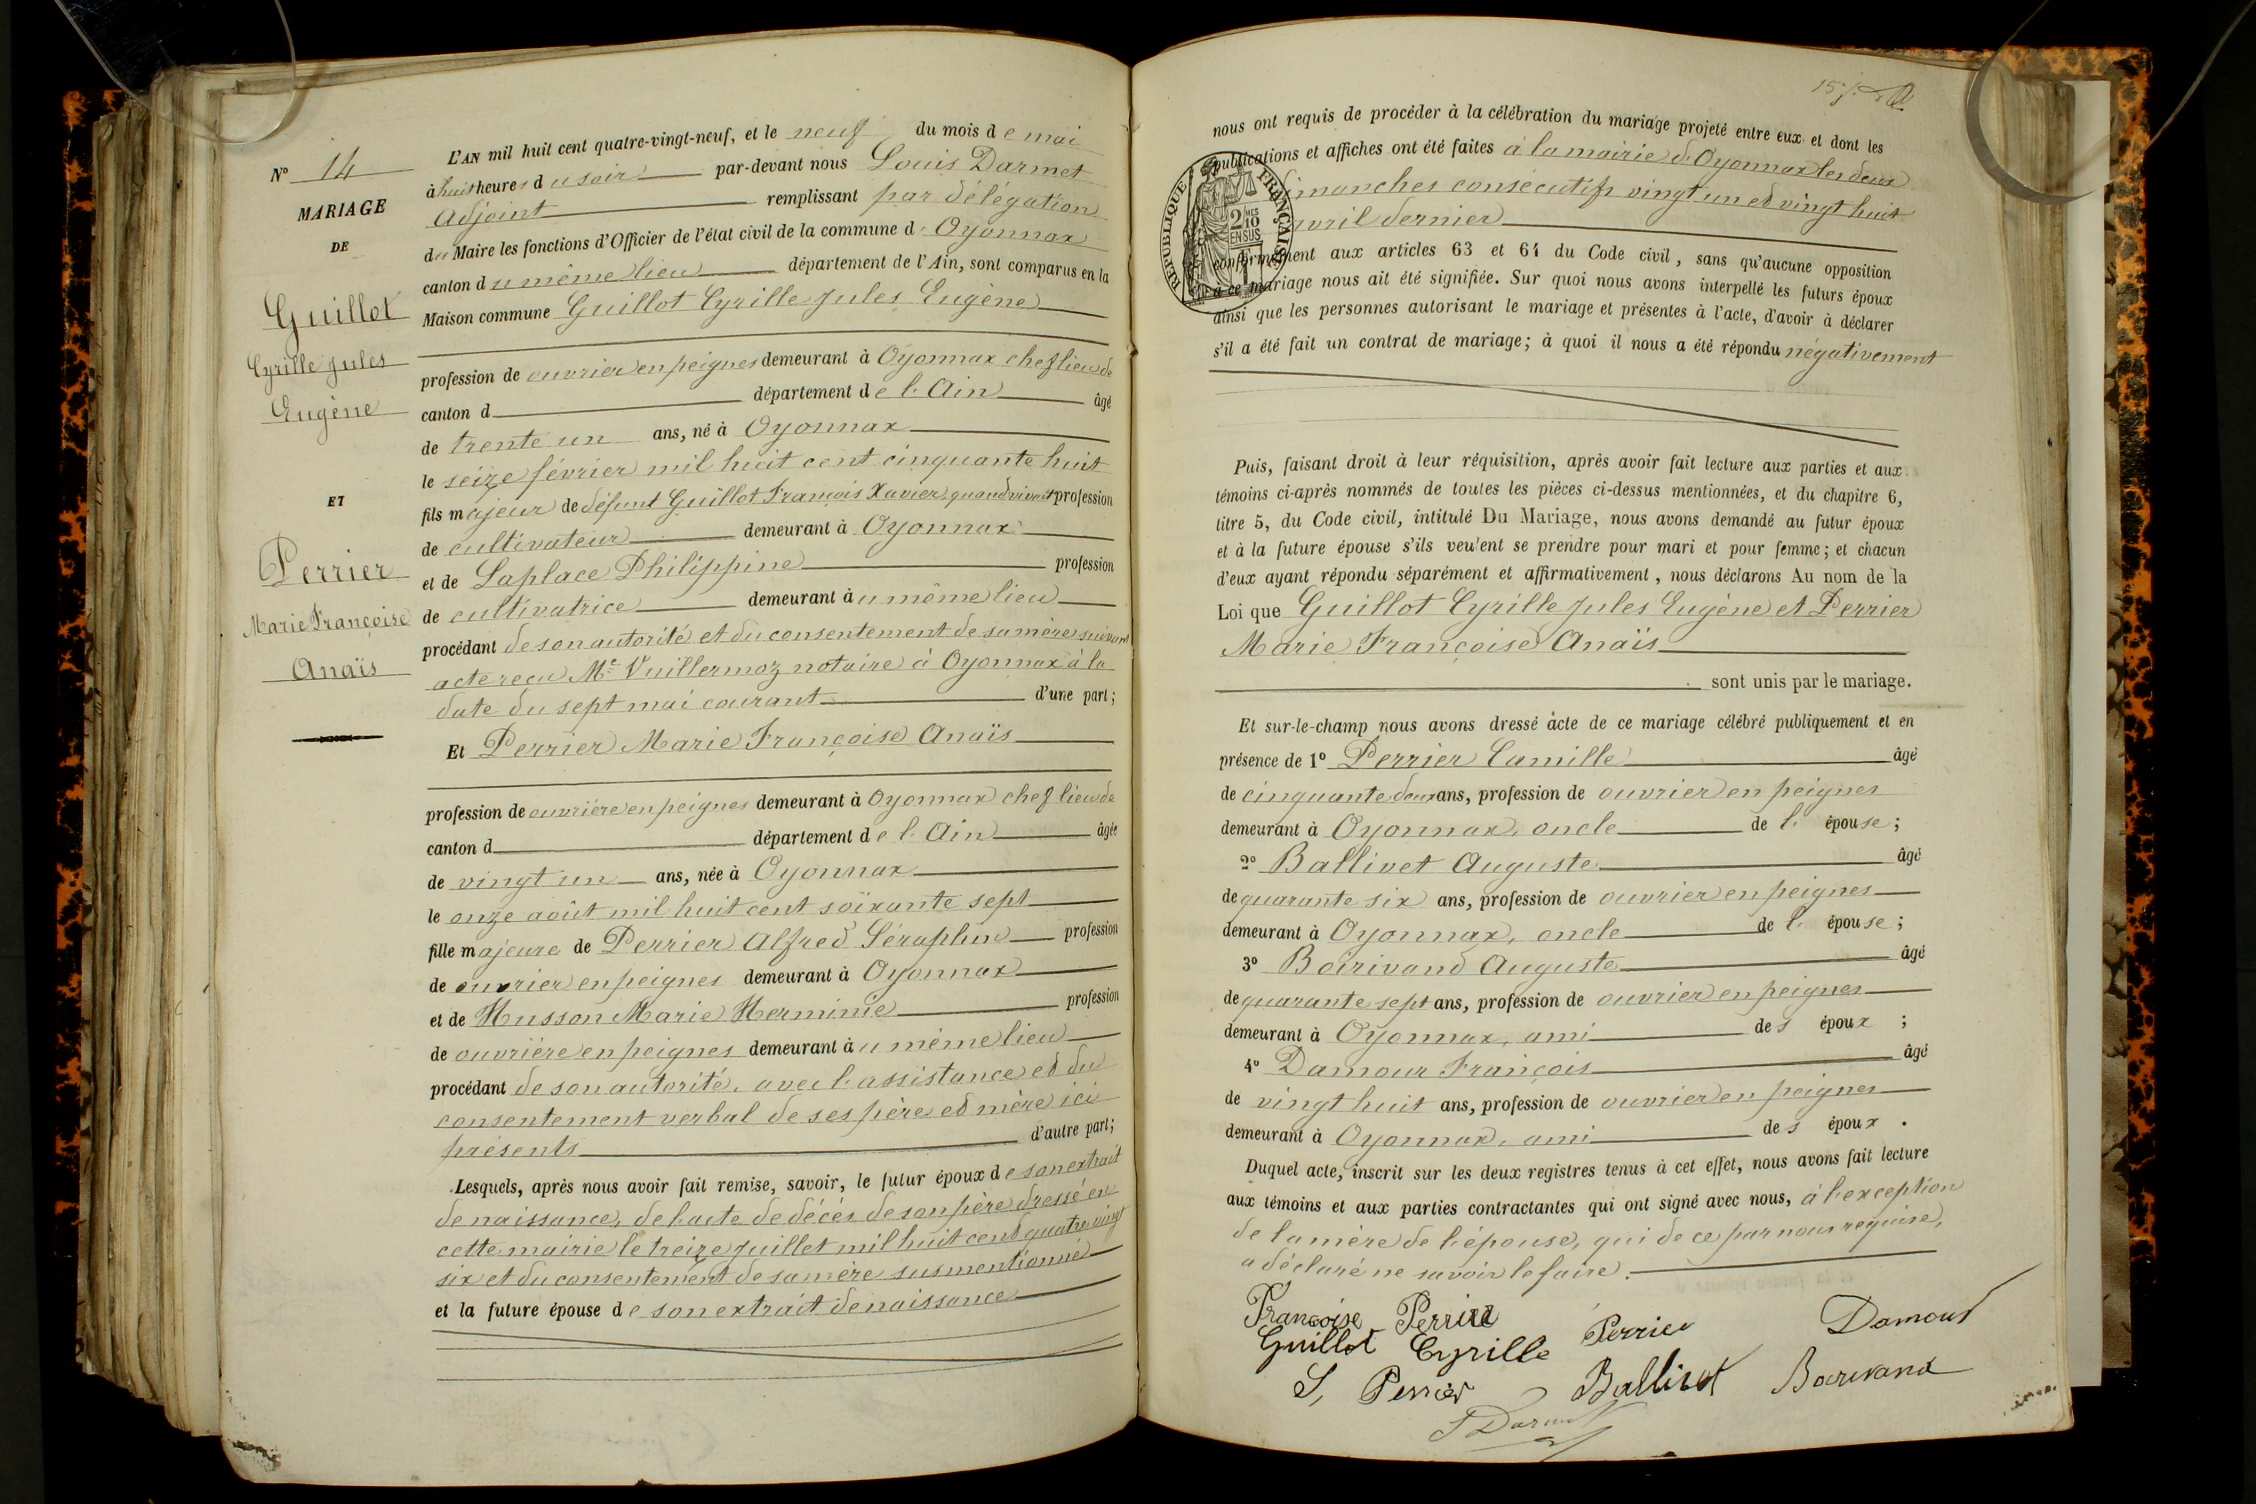 N° 14
MARIAGE
DE
Guillot
Cyrille Jules
Eugène
ET
Perrier
Marie Françoise
Anaïs
L'AN mil huit cent quatre-vingt-neuf, et le neuf du mois de mai
à huit heures du soir par-devant nous Louis Darmet
Adjoint remplissant par délégation
du Maire les fonctions d'Officier de l'état civil de la commune d'Oyonnax
canton du même lieu département de l'Ain, sont comparus en la
Maison commune Guillot Cyrille Jules Eugène
profession de ouvrier en peignes demeurant à Oyonnax chef lieu de
canton d département de l'Ain âgé
de trente un ans, né à Oyonnax
le seize février mil huit cent cinquante huit
fils majeur de défunt Guillot François Xavier, quand vivait profession
de cultivateur demeurant à Oyonnax
et de Laplace Philippine profession
de cultivatrice demeurant au même lieu
procédant de son autorité et du consentement de sa mère suivant
acte reçu Me Vuillermoz notaire à Oyonnax à la
date du sept mai courant d'une part;
Et Perrier Marie Françoise Anaïs
profession de ouvrière en peignes demeurant à Oyonnax chef lieu de
canton d département de l'Ain âgée
de vingt un ans, née à Oyonnax
le onze août mil huit cent soixante sept
fille majeure de Perrier Alfred Séraphin profession
de ouvrier en peignes demeurant à Oyonnax
et de Husson Marie Herminie profession
de ouvrière en peignes demeurant au même lieu
procédant de son autorité, avec l'assistance et du
consentement verbal de ses père et mère ici
présents d'autre part;
Lesquels, après nous avoir fait remise, savoir, le futur époux de son extrait
de naissance, de l'acte de décès de son père dressé en
cette mairie le treize juillet mil huit cent quatre vingt
six et du consentement de sa mère susmentionné
et la future épouse de son extrait de naissance
nous ont requis de procéder à la célébration du mariage projeté entre eux et dont les
publications et affiches ont été faites à la mairie d'Oyonnax les deux
dimanches consécutifs vingt un et vingt huit
avril dernier
RÉPUBLIQUE FRANÇAISE
2 10 EN SUS
conformément aux articles 63 et 64 du Code civil, sans qu'aucune opposition
à ce mariage nous ait été signifiée. Sur quoi nous avons interpellé les futurs époux
ainsi que les personnes autorisant le mariage et présentes à l'acte, d'avoir à déclarer
s'il a été fait un contrat de mariage; à quoi il nous a été répondu négativement
Puis, faisant droit à leur réquisition, après avoir fait lecture aux parties et aux
témoins ci-après nommés de toutes les pièces ci-dessus mentionnées, et du chapitre 6,
titre 5, du Code civil, intitulé Du Mariage, nous avons demandé au futur époux
et à la future épouse s'ils veulent se prendre pour mari et pour femme; et chacun
d'eux ayant répondu séparément et affirmativement, nous déclarons Au nom de la
Loi que Guillot Cyrille Jules Eugène et Perrier
Marie Françoise Anaïs
sont unis par le mariage.
Et sur-le-champ nous avons dressé acte de ce mariage célébré publiquement et en
présence de 1° Perrier Camille âgé
de cinquante deux ans, profession de ouvrier en peignes
demeurant à Oyonnax, oncle de l'épouse;
2° Ballivet Auguste âgé
de quarante six ans, profession de ouvrier en peignes
demeurant à Oyonnax, oncle de l'épouse;
3° Boirivand Auguste âgé
de quarante sept ans, profession de ouvrier en peignes
demeurant à Oyonnax, ami des époux;
4° Damour François âgé
de vingt huit ans, profession de ouvrier en peignes
demeurant à Oyonnax, ami des époux.
Duquel acte, inscrit sur les deux registres tenus à cet effet, nous avons fait lecture
aux témoins et aux parties contractantes qui ont signé avec nous, à l'exception
de la mère de l'épouse, qui de ce par nous requise,
a déclaré ne savoir le faire.
Françoise Perrier
Guillot Cyrille Perrier Damour
S, Perrier Ballivet Boirivand
L Darmet